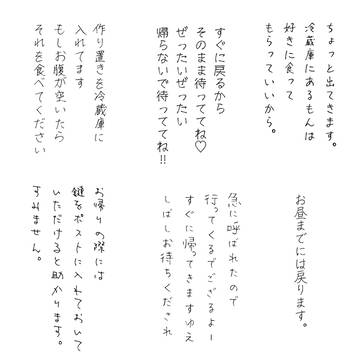 ちょっと出てきます。
冷蔵庫にあるもんは
好きに食って
もらっていいから。
すぐに戻るから
そのまま待っててね♡
ぜったいぜったい
帰らないで待っててね!!
作り置きを冷蔵庫に
入れてます
もしお腹が空いたら
それを食べてください
お昼までには戻ります。
急に呼ばれたので
行ってくるでござるよー
すぐに帰ってきますゆえ
しばしお待ちくだされ
お帰りの際には
鍵をポストに入れておいて
いただけると助かります。
すみません。